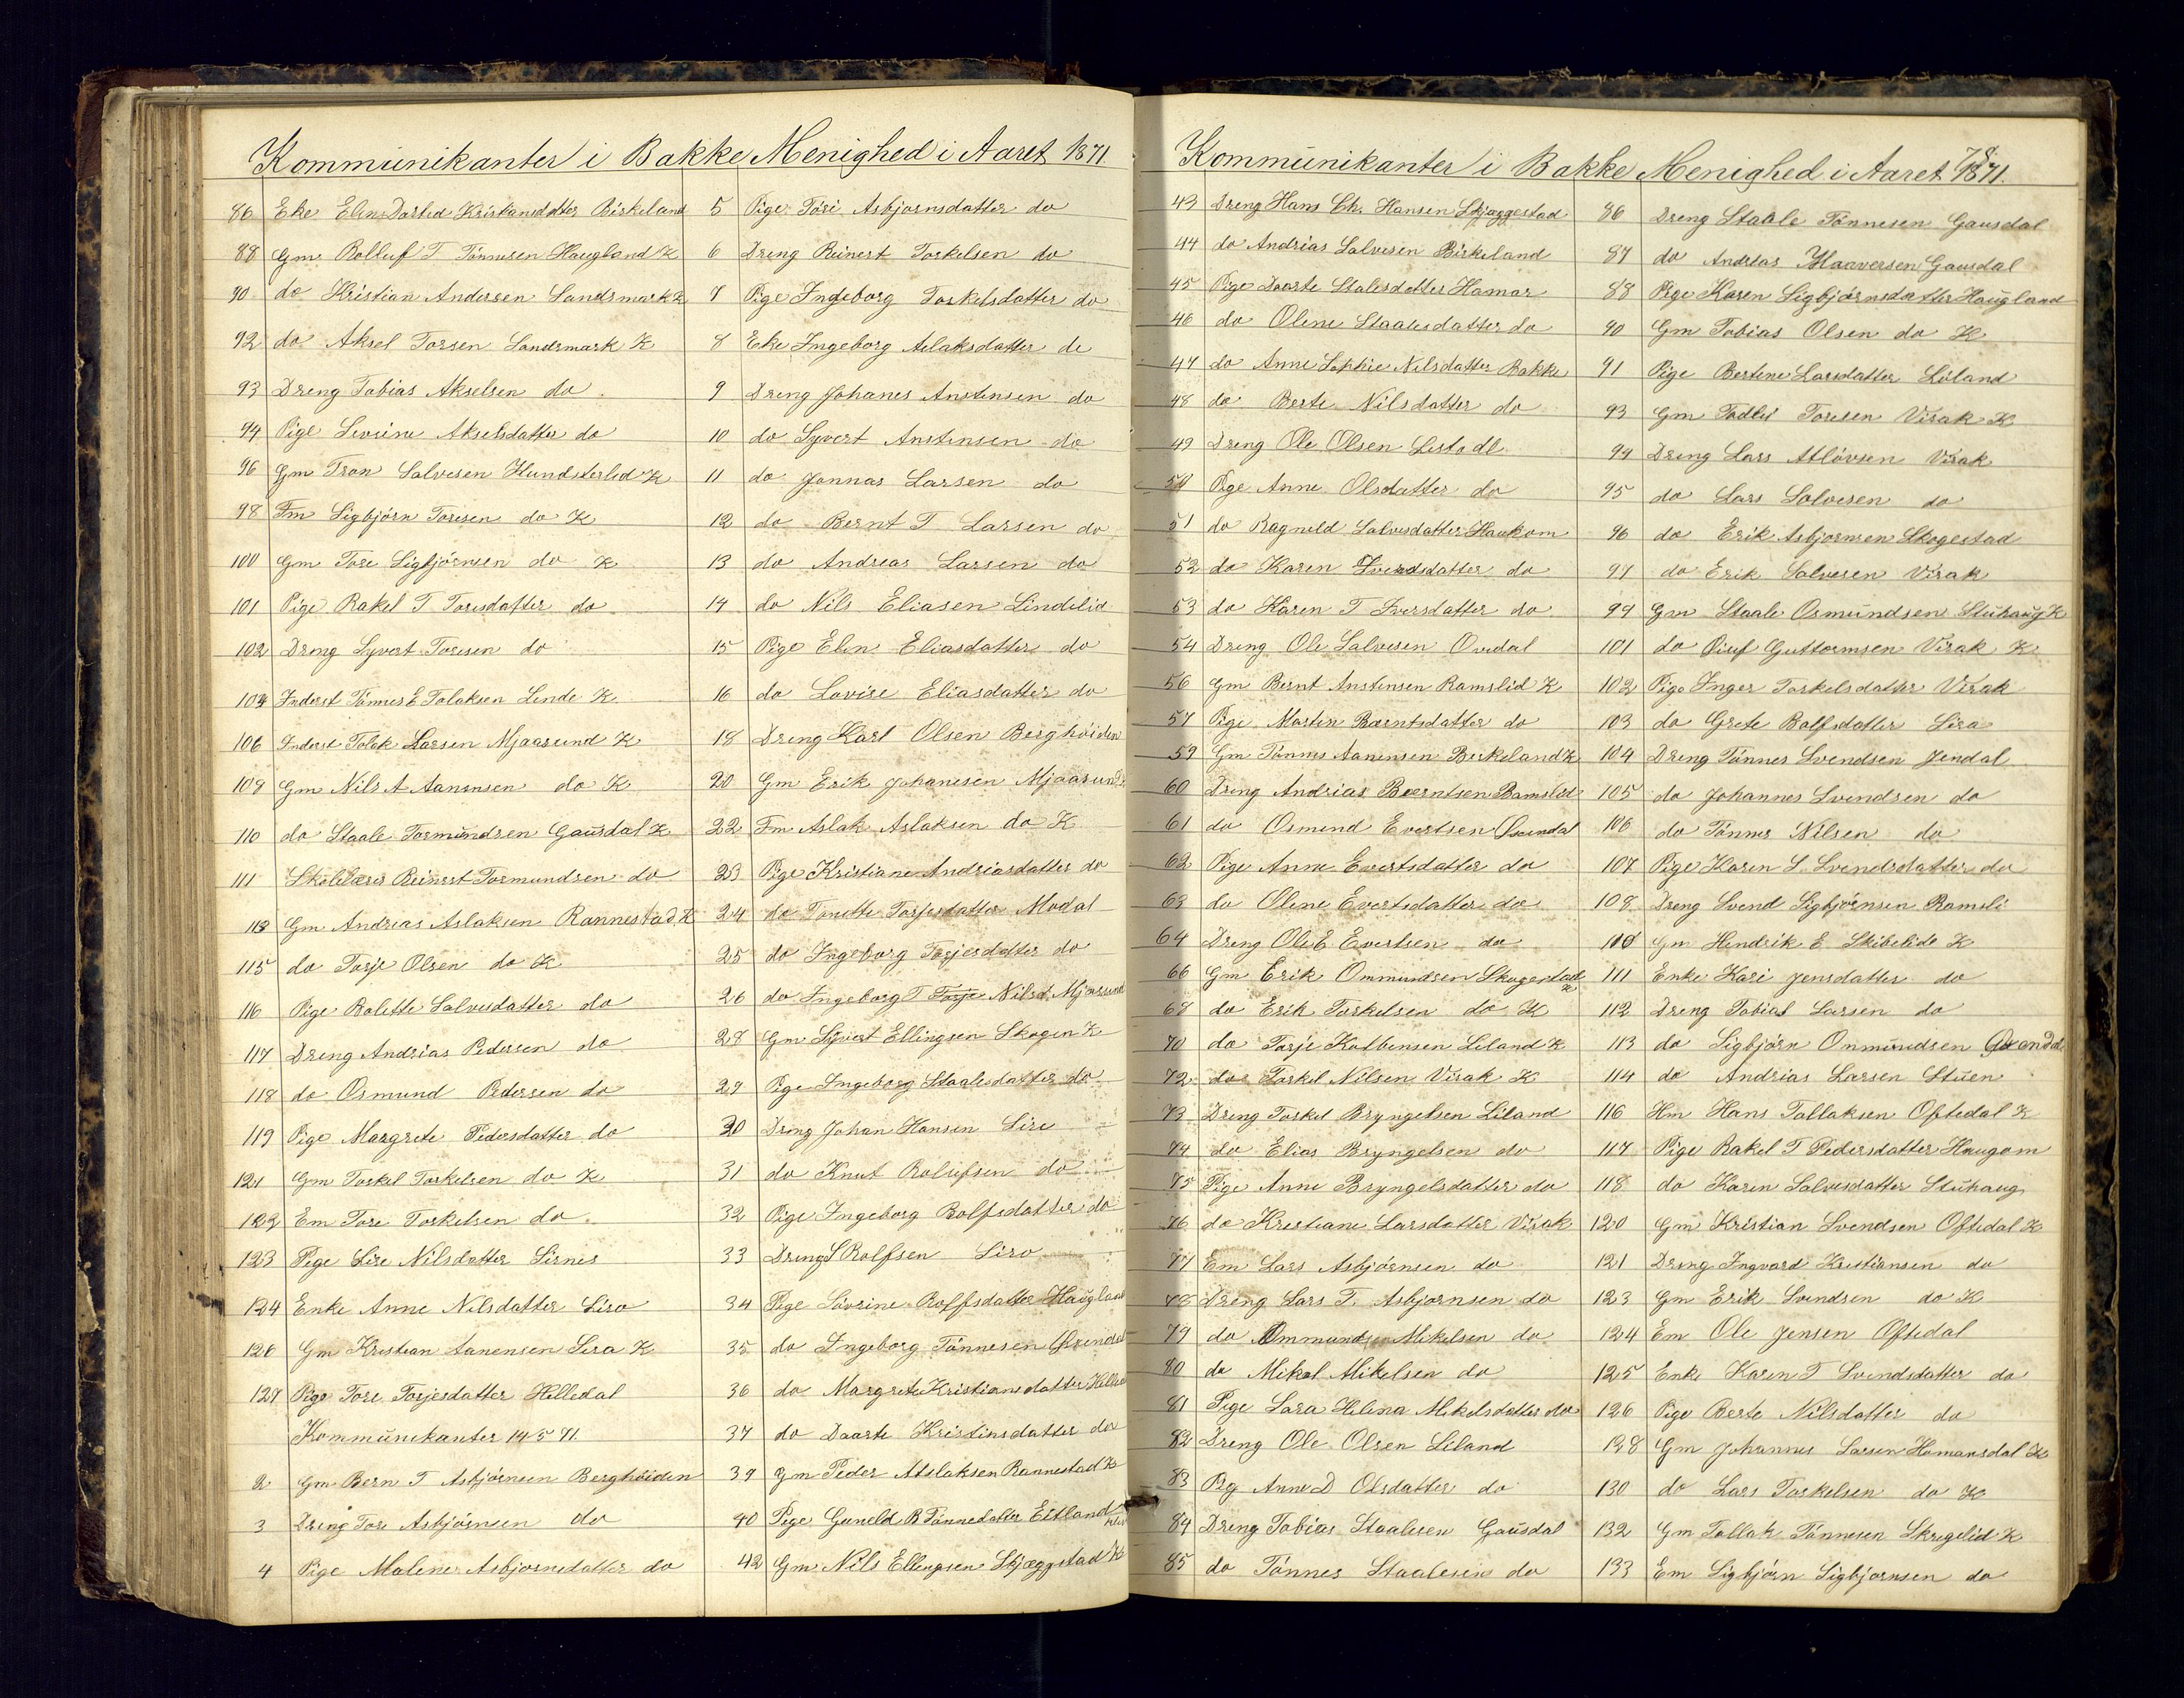 Kommunikanter i Bakke Menighed i Aaret 1871
86 Eke Elen Dorted Kristansdatter Birkeland
88 Gm Rolluf T Tönnesen Haugland K
90 do Kristian Andersen Sandsmark K
92 do Aksel Torsen Sandsmark K
93 Dreng Tobias Akselsen do
94 Pige Sevrine Akselsdatter do
96 Gm Tron Salvesen Hundsterlid K
98 Fm Sigbjörn Torisen do K
100 Gm Tore Sigbjörnsen do K
101 Pige Rakel T Toresdatter do
102 Dreng Syvert Toresen do
104 Inderst Tönnes E Tolaksen Linde K
106 Inderst Tolek Larsen Mjaasund K
108 Gm Nils A Aanensen do K
110 do Staale Tormundsen Gausdal K
111 Skolelærer Reinert Tormundsen do
113 Gm Andreas Aslaksen Rannestad K
115 do Torje Olsen do K
116 Pige Bolette Salvesdatter do
117 Dreng Andrias Pedersen do
118 do Osmund Pedersen do
119 Pige Margrete Pedersdatter do
121 Gm Torkel Torkelsen do K
122 Em Tore Torkelsen do
123 Pige Sire Nilsdatter Sirnes
124 Enke Anne Nilsdatter Sira
126 Gm Kristian Aanensen Sira K
127 Pige Tore Torjesdatter Helledal
Kommunikanter 14 5 71.
2 Gm Bern T Asbjörnsen Berghöiden
3 Dreng Tore Asbjörnsen do
4 Pige Malene Asbjornsdatter do
5 Pige Töri Asbjornsdatter do
6 Dreng Reinert Torkelsen do
7 Pige Ingeborg Torkelsdatter do
8 Eke Ingeborg Aslaksdatter do
9 Dreng Johanes Anstensen do
10 do Syvert Anstensen do
11 do Jonnas Larsen do
12 do Bernt T Larsen do
13 do Andreas Larsen do
14 do Nils Eliasen Lindelid
15 Pige Elen Eliasdatter do
16 do Lovise Eliasdatter do
18 Dreng Karl Olsen Berghöiden
20 Gm Erik Johanesen Mjaasund
22 Fm Aslak Aslaksen do K
23 Pige Kristiane Andriasdatter do
24 do Tonette Torjesdatter Modal
25 do Ingeborg Torjesdatter do
26 do Ingeborg T Torje Nilsd. Mjaasund
28 Gm Syvert Ellingsen Skogen K
29 Pige Ingeborg Staalesdatter do
30 Dreng Johan Hansen Sire
31 do Knut Rolufsen do
32 Pige Ingeborg Rolfsdatter do
33 Dreng S Rolfsen Siro
34 Pige Sövrine Rolfsdatter Haugland
35 do Ingeborg Tönnesen Qvendal
36 do Margrete Kristiansdatter
37 do Daarte Kristinsdatter do
39 Gm Peder Atslaksen Rannestad K
40 Pige Guneld B Tönnedatter Eitland
42 Gm Nils Ellingsen Skjeggstad K
78
Kommunikanter i Bakke Menighed i Aaret 1871.
43 Dreng Hans Ch. Hansen Skjæggestad
44 do Andrias Salvesen Birkeland
45 Pige Daarte Stalesdatter Hamar
46 do Olene Staalesdatter do
47 do Anne Sophie Nilsdatter Bakke
48 do Berte Nilsdatter do
49 Dreng Ole Olsen
50 Pige Anne Olsdatter do
51 do Ragneld Salvesdatter Haukom
52 do Karen do
53 do Karen T Iversdatter do
54 Dreng Ole Salvesen Ovedal
56 Gm Bernt Anstensen Ramslid K
57 Pige Marten Berntsdatter do
59 Gm Tönnes Aanensen Berkeland K
60 Dreng Andrias Berntsen Ramslid
61 do Osmund Evertsen Qvendal
62 Pige Anne Evertsdatter do
63 do Olene Evertsdatter do
64 Dreng Ole E Evertsen do
66 Gm Erik Ommundsen Skogestad K
68 do Erik Torkelsen do K
70 do Torje Kolbensen Liland K
72 do Torkel Nilsen Virak K
73 Dreng Torkel Bryngelsen Liland
74 do Elias Bryngelsen do
75 Pige Anne Bryngelsdatter do
76 do Kristiane Larsdatter Virak
77 Em Lars Asbjörnsen do
78 Dreng Lars T. Asbjornsen do
79 do Ommund Mikelsen do
80 do Mikal Mikelsen do
81 Pige Sara Helena Mikelsdatter do
82 Dreng Ole Olsen Liland
83 Pig Anne D Olsdatter do
84 Dreng Tobias Staalesen Gausdal
85 do Tönnes Staalesen do
86 Dreng Staale Tönnesen Gausdal
87 do Andreas Haaversen Gausdal
88 Pige Karen Sigbjörnsdatter Haugland
90 Gm Tobias Olsen do K
91 Pige Bertine Larsdatter Löland
93 Gm Tadlei Toresen Virak K
94 Dreng Lars Atlövsen Virak
95 do Lars Salvesen do
96 do Erik Asbjornsen Skogestad
97 do Erik Salvesen Virak
99 Gm Staale Osmundsen Stuhaug K
101 do Guttormsen Virak K
102 Pige Inger Torkelsdatter Virak
103 do Grete Rolfsdatter Sira
104 Dreng Tönnes Svendsen Jendal
105 do Johannes Svendsen do
106 do Tönnes Nilsen do
107 Pige Karen S Svendsdatter do
108 Dreng Svend Sigbjörnsen Ramsli
110 Gm Hendrik E Skibelide K
111 Enke Kari Jensdatter do
112 Dreng Tobias Larsen do
113 do Sigbjörn Onmundsen Qvendal
114 do Andrias Larsen Stuen
116 Hm Hans Tallaksen Oftedal K
117 Pige Rakel T Pedersdatter Haugom
118 do Karen Salvesdatter Stuhaug
120 Gm Kristian Svendsen Oftedal K
121 Dreng Ingvard Kristiansen do
123 Gm Erik Svendsen do K
124 Em Ole Jensen Oftedal
125 Enke Karen T Svendsdatter do
126 Pige Berte Nilsdatter do
128 Gm Johannes Larsen Homansdal K
130 do Lars Torkelsen do K
132 Gm Tallak Tönnesen Skregelid K
133 Em Sigbjörn Sigbjornsen do